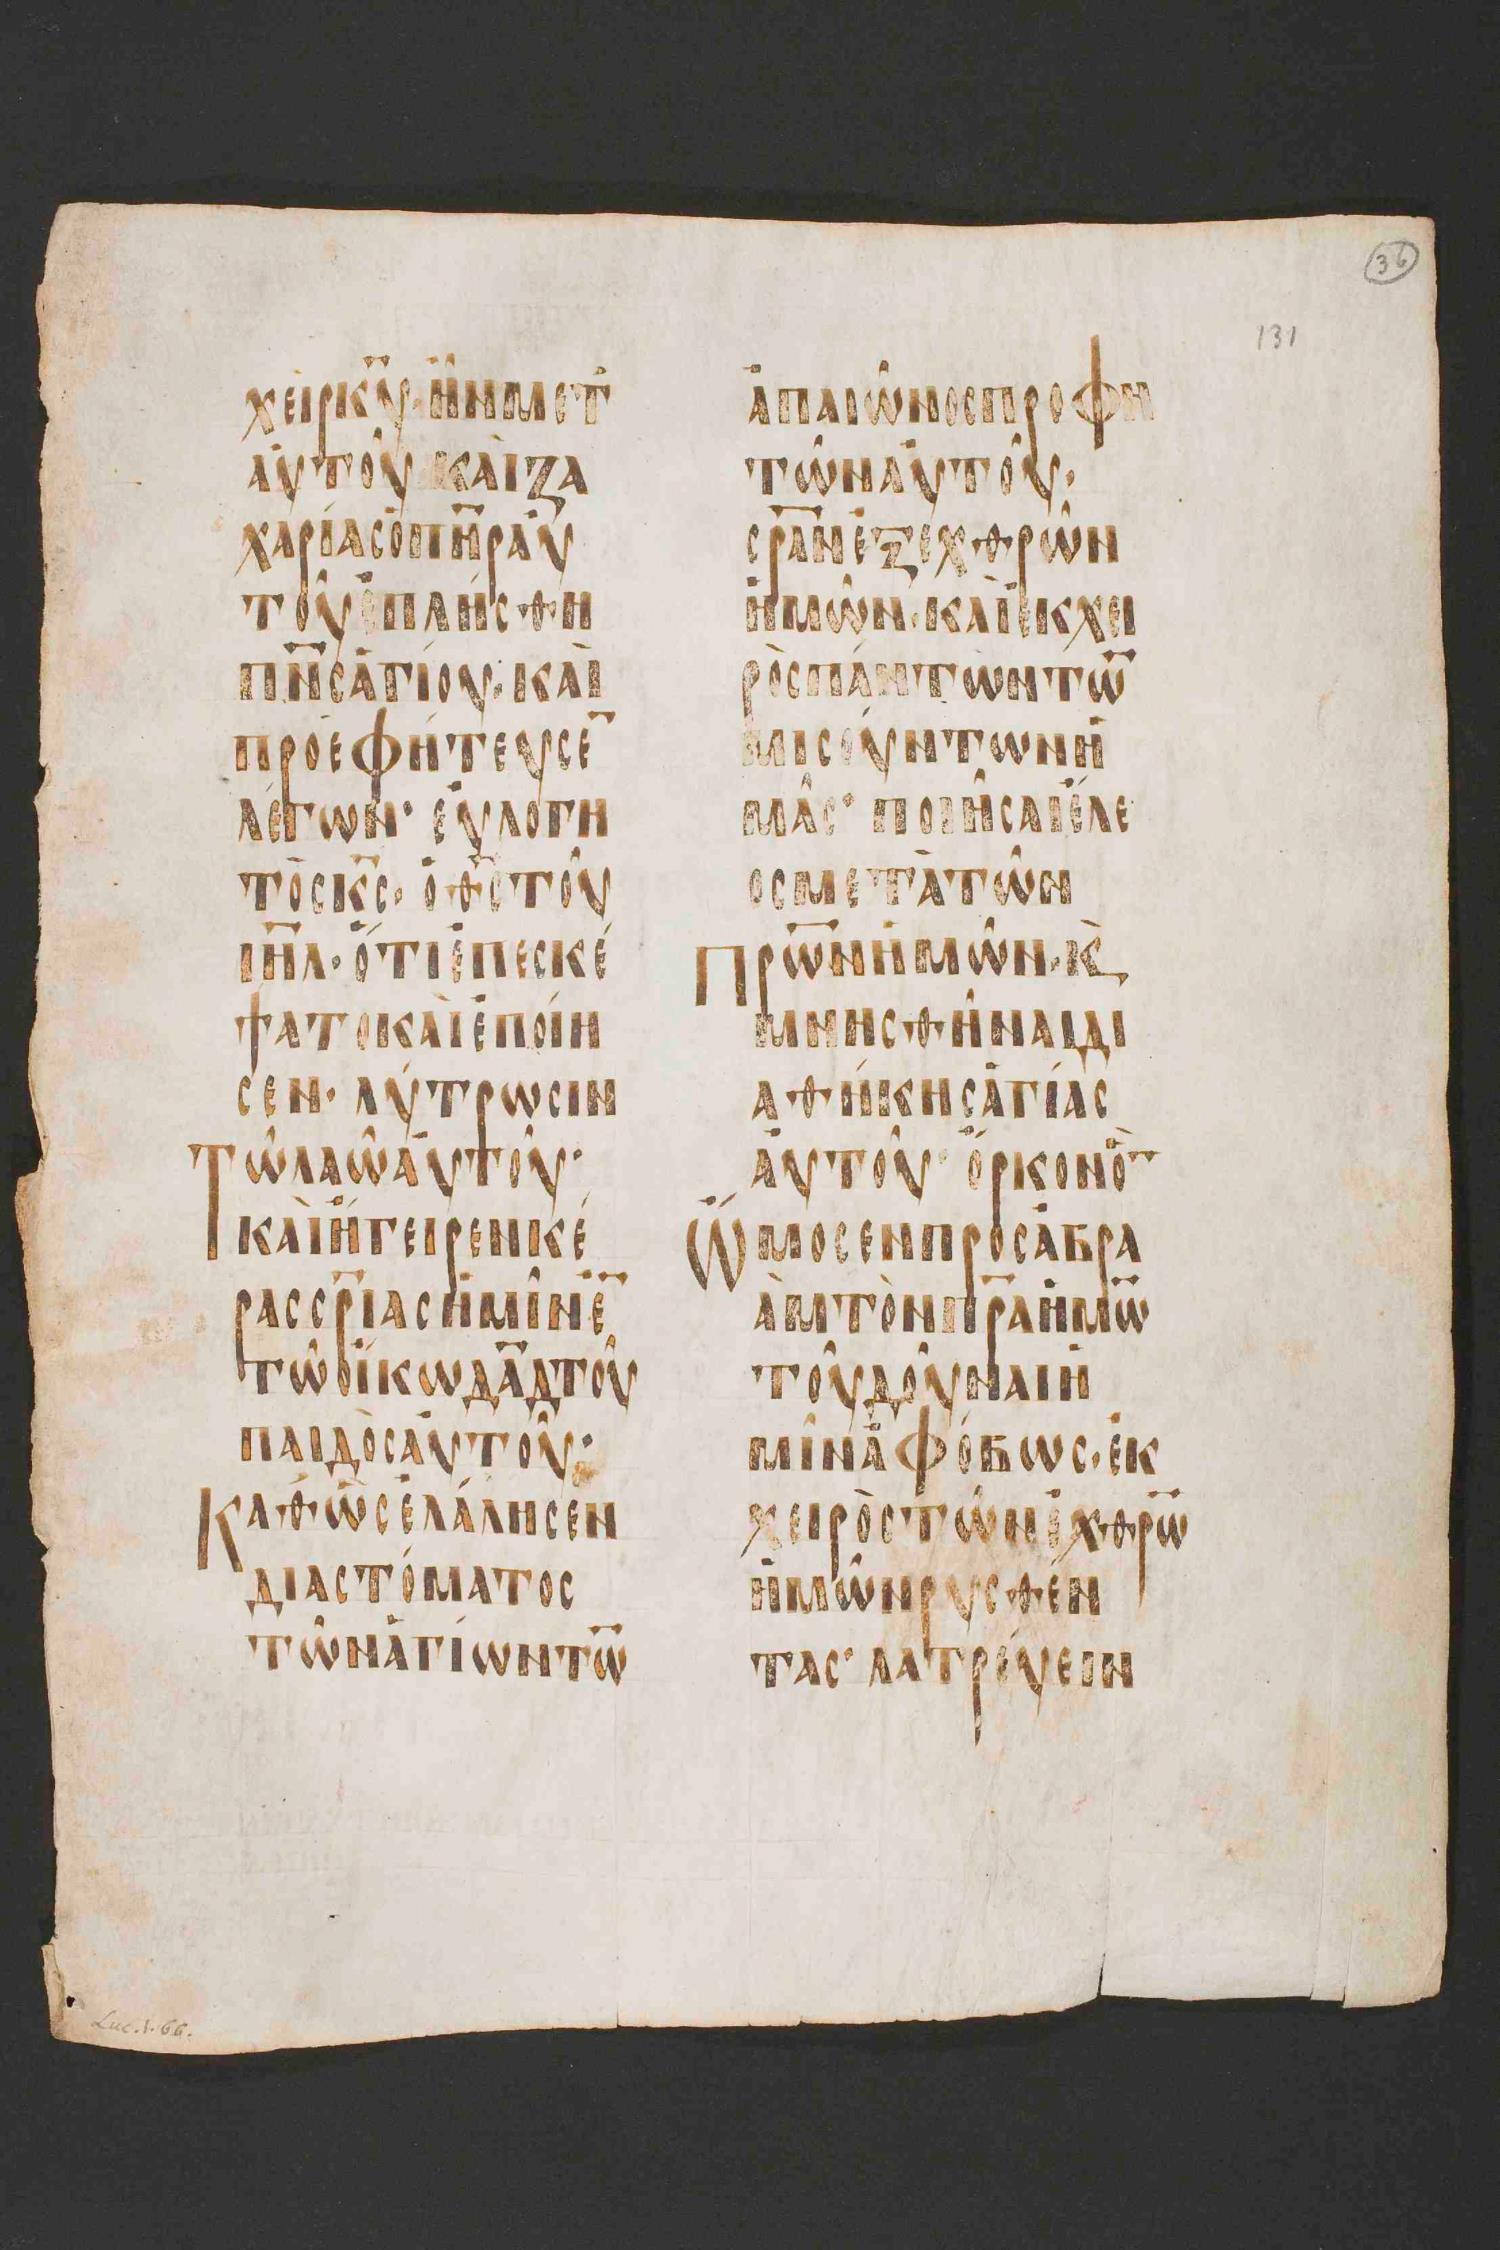 36
131
χεὶρ κ̅υ̅· ἦν μετ
ἀυτοῦ καὶ ζα
χαρίας ὁ π̅η̅ρ̅ ἀυ
τοῦ ἐπλήσθη
π̅ν̅ς̅ ἁγίου· καὶ
προεφήτευσε̅
λέγων· ἐυλογη
τὸς κ̅ς̅· ὁ θ̅ς̅ τοῦ
ι̅η̅λ̅· ὅτι ἐπεσκέ
ψατο καὶ ἐποίη
σεν· λύτρωσιν
Τῶ λαῶ ἀυτοῦ·
καὶ ἤγειρεν κέ
ρας σ̅ρ̅ιας ἡμῖν ἐ̅
τῶ οἴκω δ̅α̅δ̅ τοῦ
παιδὸς ἀυτοῦ·
Καθὼς ἐλάλησεν
δια στόματος
τῶν ἁγίων τω̅
ἀπ αιῶνος προφη
τῶν ἀυτοῦ·
σ̅ρ̅αν ἐξ ἐχθρῶν
ἡμῶν· καὶ ἐκ χει
ρὸς πάντων τω̅
μισούντων ἡ
μᾶς· ποιῆσαι ἔλε
ος μετὰ τῶν
Π̅ρ̅ω̅ν ἡμῶν· κ̀
μνησθῆναι δι
αθήκης ἁγίας
ἀυτοῦ· ὅρκον ὃ̅
Ὤμοσεν προς ἀβρα
ὰμ τὸν π̅ρ̅α̅ ἡμω̅
τοῦ δοῦναι ἡ
μῖν ἀφόβως· ἐκ
χειρὸς τῶν ἐχθρω̅
ἡμῶν ρυσθέν
τας· λατρέυειν
Luc. 1. 66.